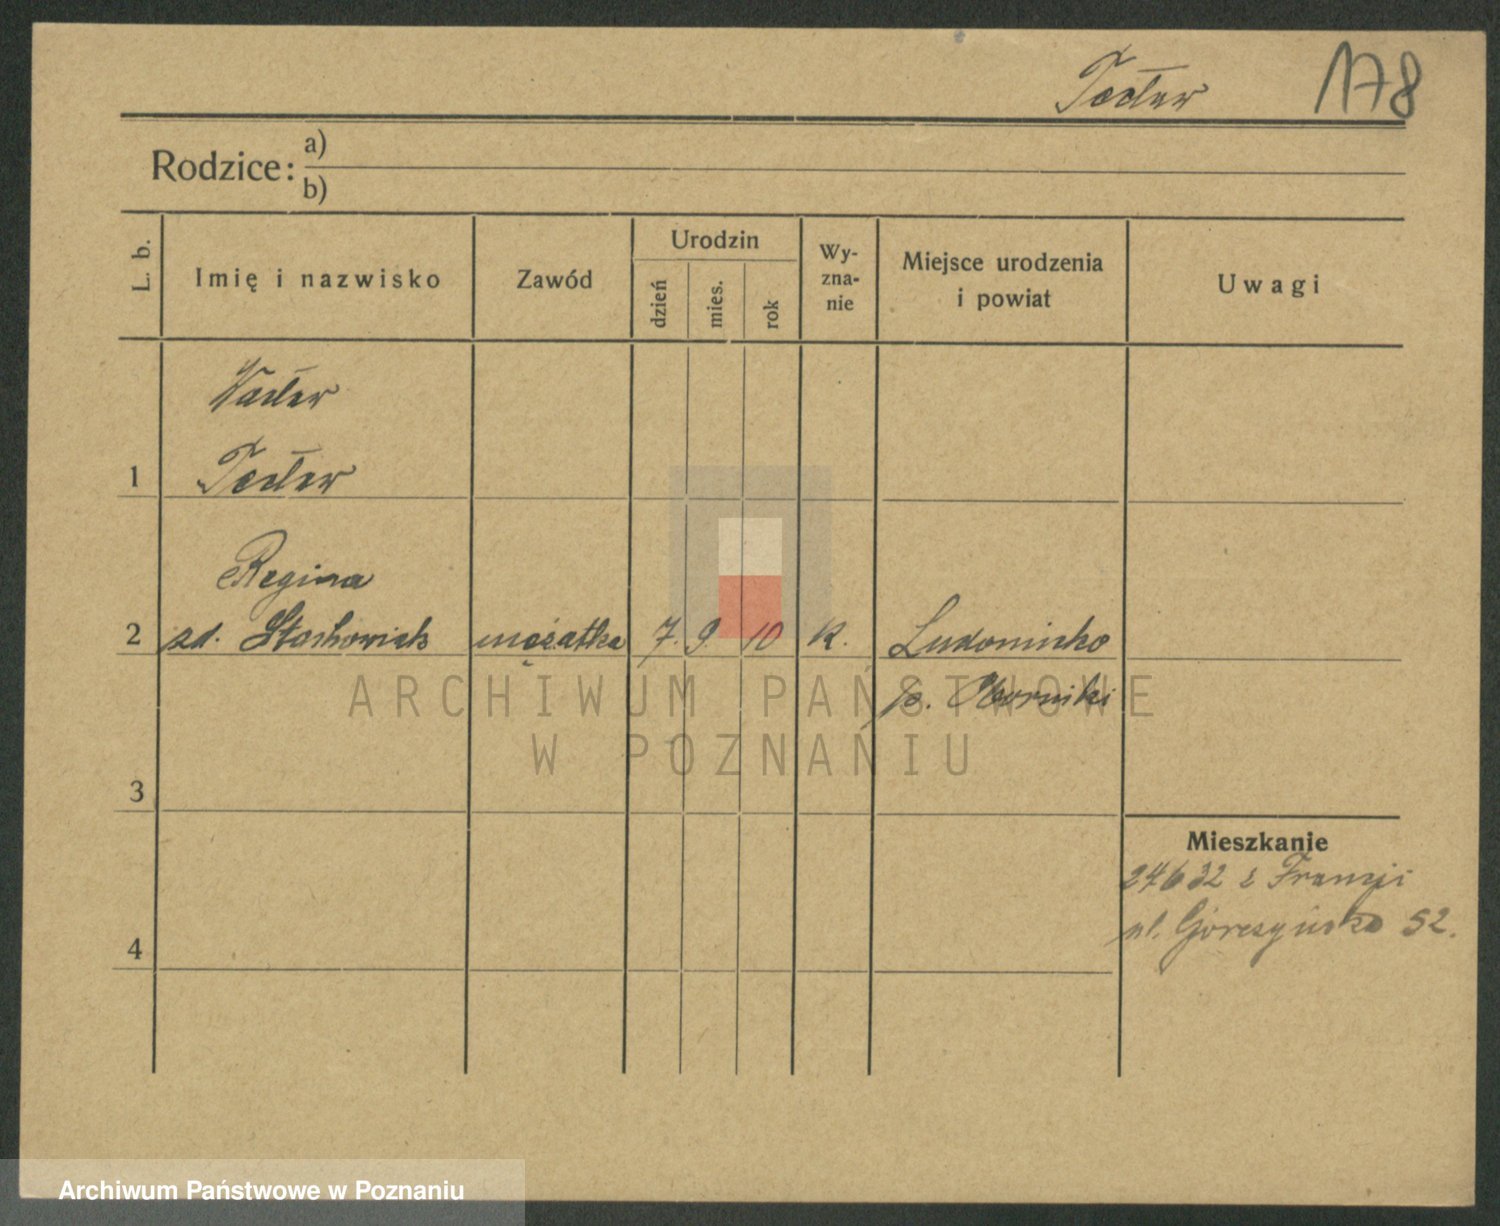 Tocław
178
Rodzice: a)
b)
L. b.
Imię i nazwisko
Zawód
Urodzin
dzień
mies.
rok
Wy-
zna-
nie
Miejsce urodzenia
i powiat
Uwagi
Wacław
1 Tocław
Regina
2 zd. Stachowiak mężatka 7. 9. 10 k.
p. Oborniki
3
4
Mieszkanie
24632 z Francji
ul. Górczyńska 52.
ARCHIWUM PAŃSTWOWE
W POZNANIU
Archiwum Państwowe w Poznaniu